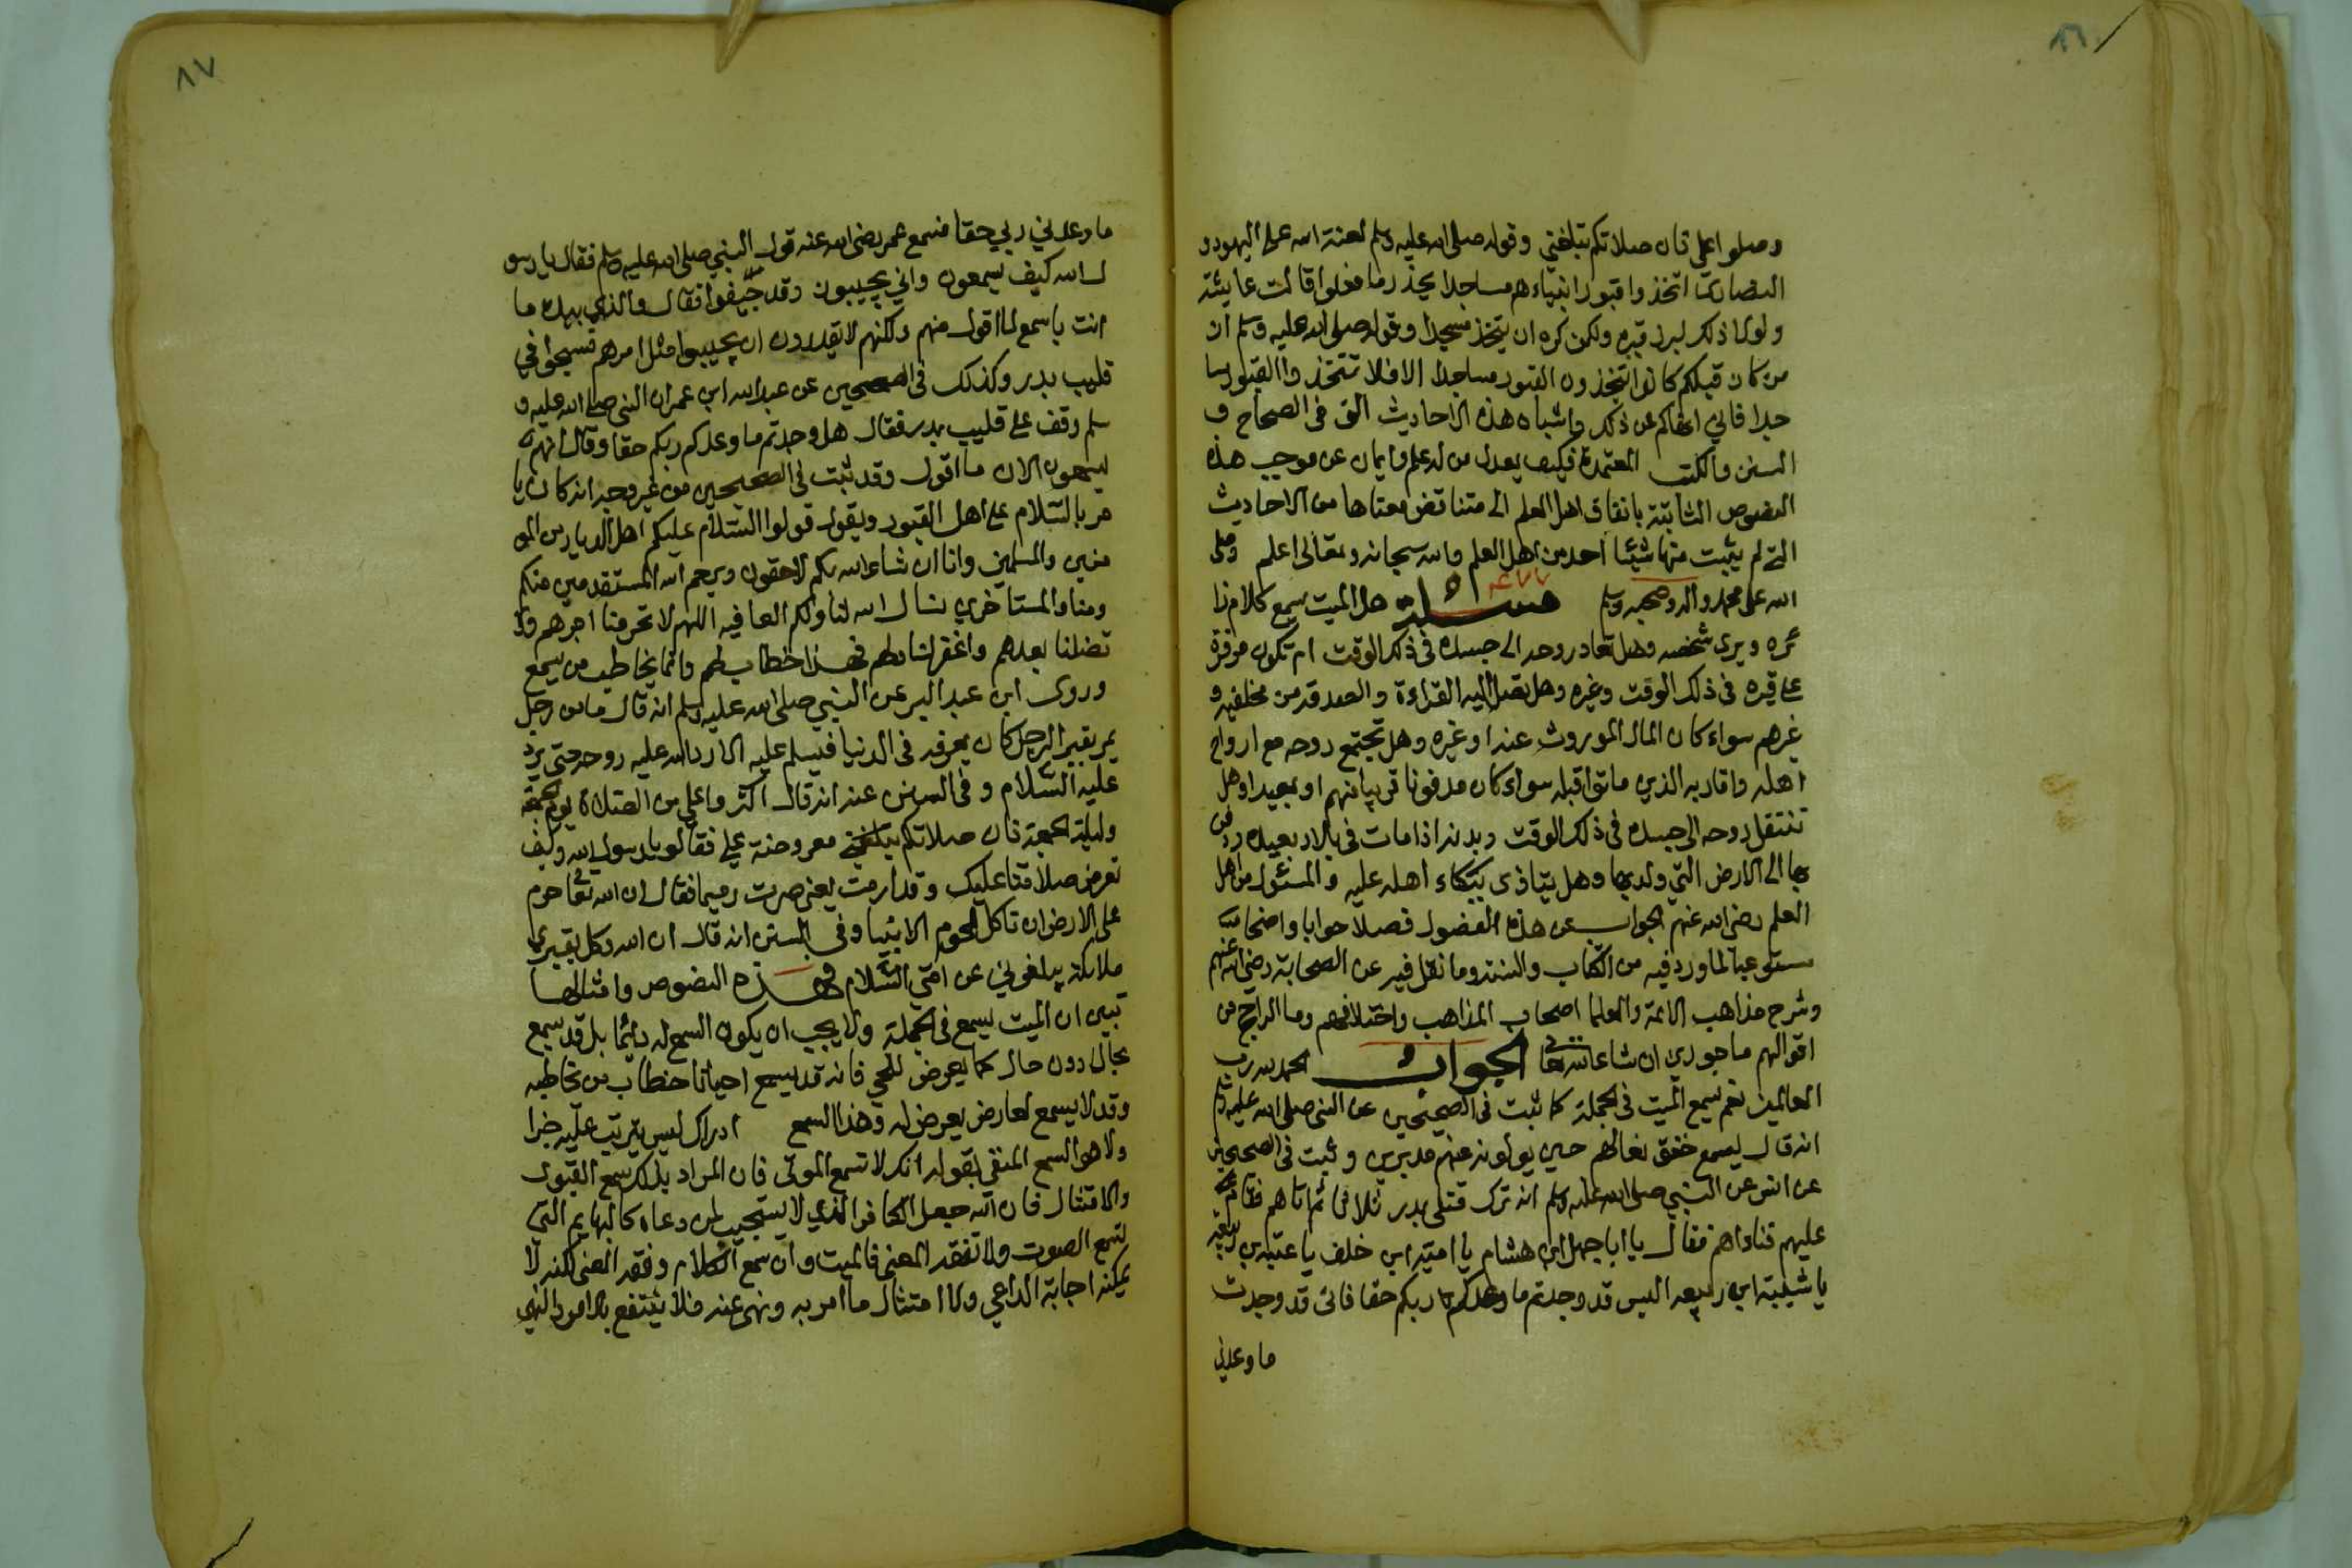 ٨٦
وصلوا علي فان صلاتكم تبلغني وقوله صلى الله عليه وسلم لعنة الله على اليهود و
النصارى اتخذوا قبور انبياءهم مساجدا يحذر ما فعلوا قالت عايشة
ولولا ذلك لبرز قبره ولكن كره ان يتخذ مسجدا وقوله صلى الله عليه وسلم ان
من كان قبلكم كانوا يتخذون القبور مساجدا الا فلا تتخذوا القبور مسا
جدا فاني انهاكم عن ذلك واشباه هذه الاحاديث التي في الصحاح و
السنن والكتب المعتمدة فكيف يعدل من له علم وايمان عن موجب هذه
النصوص الثابتة باتفاق اهل العلم الى متناقض معناها من الاحاديث
التي لم يثبت منها شيئا احد من اهل العلم والله سبحانه وتعالى اعلم وصلى
الله على محمد واله وصحبه وسلم مسئلة هل الميت يسمع كلام زا
ئره ويرى شخصه وهل تعاد روحه الى جسده في ذلك الوقت ام تكون مرفرفة
على قبره في ذلك الوقت وغيره وهل تصل اليه القراءة والصدقة من مخلفيه و
غيرهم سواء كان المال الموروث عنه او غيره وهل تجتمع روحه مع ارواح
اهله واقاربه الذين ماتوا قبله سواء كان مدفونا قريبا منهم او بعيدا وهل
تنتقل روحه الى جسده في ذلك الوقت وبدنه اذا مات في بلاد بعيده ودفن
بها الى الارض التي ولد بها وهل يتاذى ببكاء اهله عليه والمسئول من اهل
العلم رضي الله عنهم الجواب عن هذه الفصول فصلا جوابا واضحا مب
ستوعبا لما ورد فيه من الكتاب والسنة وما نقل فيه عن الصحابة رضي الله عنهم
وشرح مذاهب الائمة والعلما اصحاب المذاهب واختلافهم وما الراجح من
اقوالهم ماجورين ان شاء الله تعالى الجواب الحمد لله رب
العالمين نعم يسمع الميت في الجملة كما ثبت في الصحيحين عن النبي صلى الله عليه وسلم
انه قال يسمع خفق نعالهم حين يولون عنه مدبرين وثبت في الصحيحين
عن انس عن النبي صلى الله عليه وسلم انه ترك قتلى بدر ثلاثا ثم اتاهم فقام
عليهم فناداهم فقال يا ابا جهل ابن هشام يا امية ابن خلف يا عتبه بن ربيعه
يا شيبة ابن ربيعه اليس قد وجدتم ما وعدكم ربكم حقا فانى قد وجدت
ما وعدني
٨٧
ما وعدني ربي حقا فسمع عمر رضي الله عنه قول النبي صلى الله عليه وسلم فقال يا رسو
ل الله كيف يسمعون واني يجيبون وقد جيفوا فقال والذي نفسي بيده ما
انت باسمع لما اقول منهم ولكنهم لا يقدرون ان يجيبوا ثم امر بهم فسحبوا في
قليب بدر وكذلك في الصحيحين عن عبد الله ابن عمر ان النبي صلى الله عليه و
سلم وقف على قليب بدر فقال هل وجدتم ما وعدكم ربكم حقا وقال انهم
ليسمعون الان ما اقول وقد ثبت في الصحيحين من غير وجه انه كان يا
مر بالسلام على اهل القبور ويقول قولوا السلام عليكم اهل الديار من المو
منين والمسلمين وانا ان شاء الله بكم لاحقون ويرحم الله المستقدمين منكم
ومنا والمستاخرين نسال الله لنا ولكم العافيه اللهم لا تحرمنا اجرهم ولا
تضلنا بعدهم واغفر لنا ولهم فهذا خطاب لهم وانما يخاطب من يسمع
وروى ابن عبد البر عن النبي صلى الله عليه وسلم انه قال ما من رجل
يمر بقبر الرجل كان يعرفه في الدنيا فيسلم عليه الا رد الله عليه روحه حتى يرد
عليه السلام وفي السنن عنه انه قال اكثروا علي من الصلاة يوم الجمعة
وليلة الجمعة فان صلاتكم معروضة علي فقالو يا رسول الله وكيف
تعرض صلاتنا عليك وقد ارمت يعني صرت رميما فقال ان الله تعالى حرم
على الارض ان تاكل لحوم الانبيا وفي السنن انه قال ان الله وكل بقبري
ملائكة يبلغوني عن امتي السلام فهذه النصوص وامثالها
تبين ان الميت يسمع في الجملة ولا يجب ان يكون السمع له دائما بل قد يسمع
بحال دون حال كما يعرض للحي فانه قد يسمع احيانا خطاب من تخاطبه
وقد لا يسمع لعارض يعرض له وهذا السمع ادراك ليس يترتب عليه جزا
ولا هو السمع المنفي بقوله انك لا تسمع الموتى فان المراد بذلك سمع القبول
والامتثال فان الله جعل الكافر الذي لا يستجيب لمن دعاه كالبهايم التي
تسمع الصوت ولا تفقه المعنى فالميت وان سمع الكلام وفقه المعنى لكنه لا
يمكنه اجابة الداعي ولا امتثال ما امر به ونهي عنه فلا ينتفع بالامر والنهي